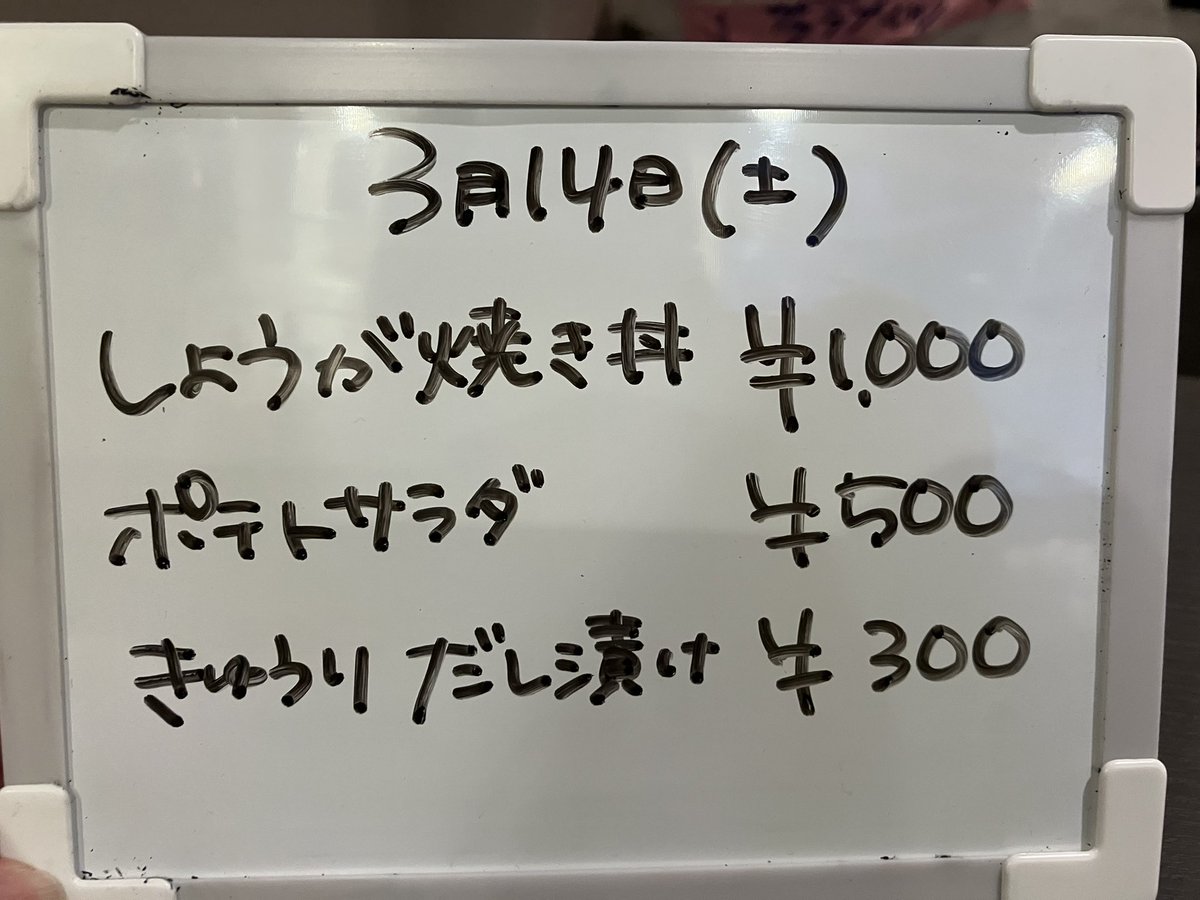 3月14日(土)
しょうが焼き丼 ¥1,000
ポテトサラダ ¥500
きゅうりだし漬け ¥300